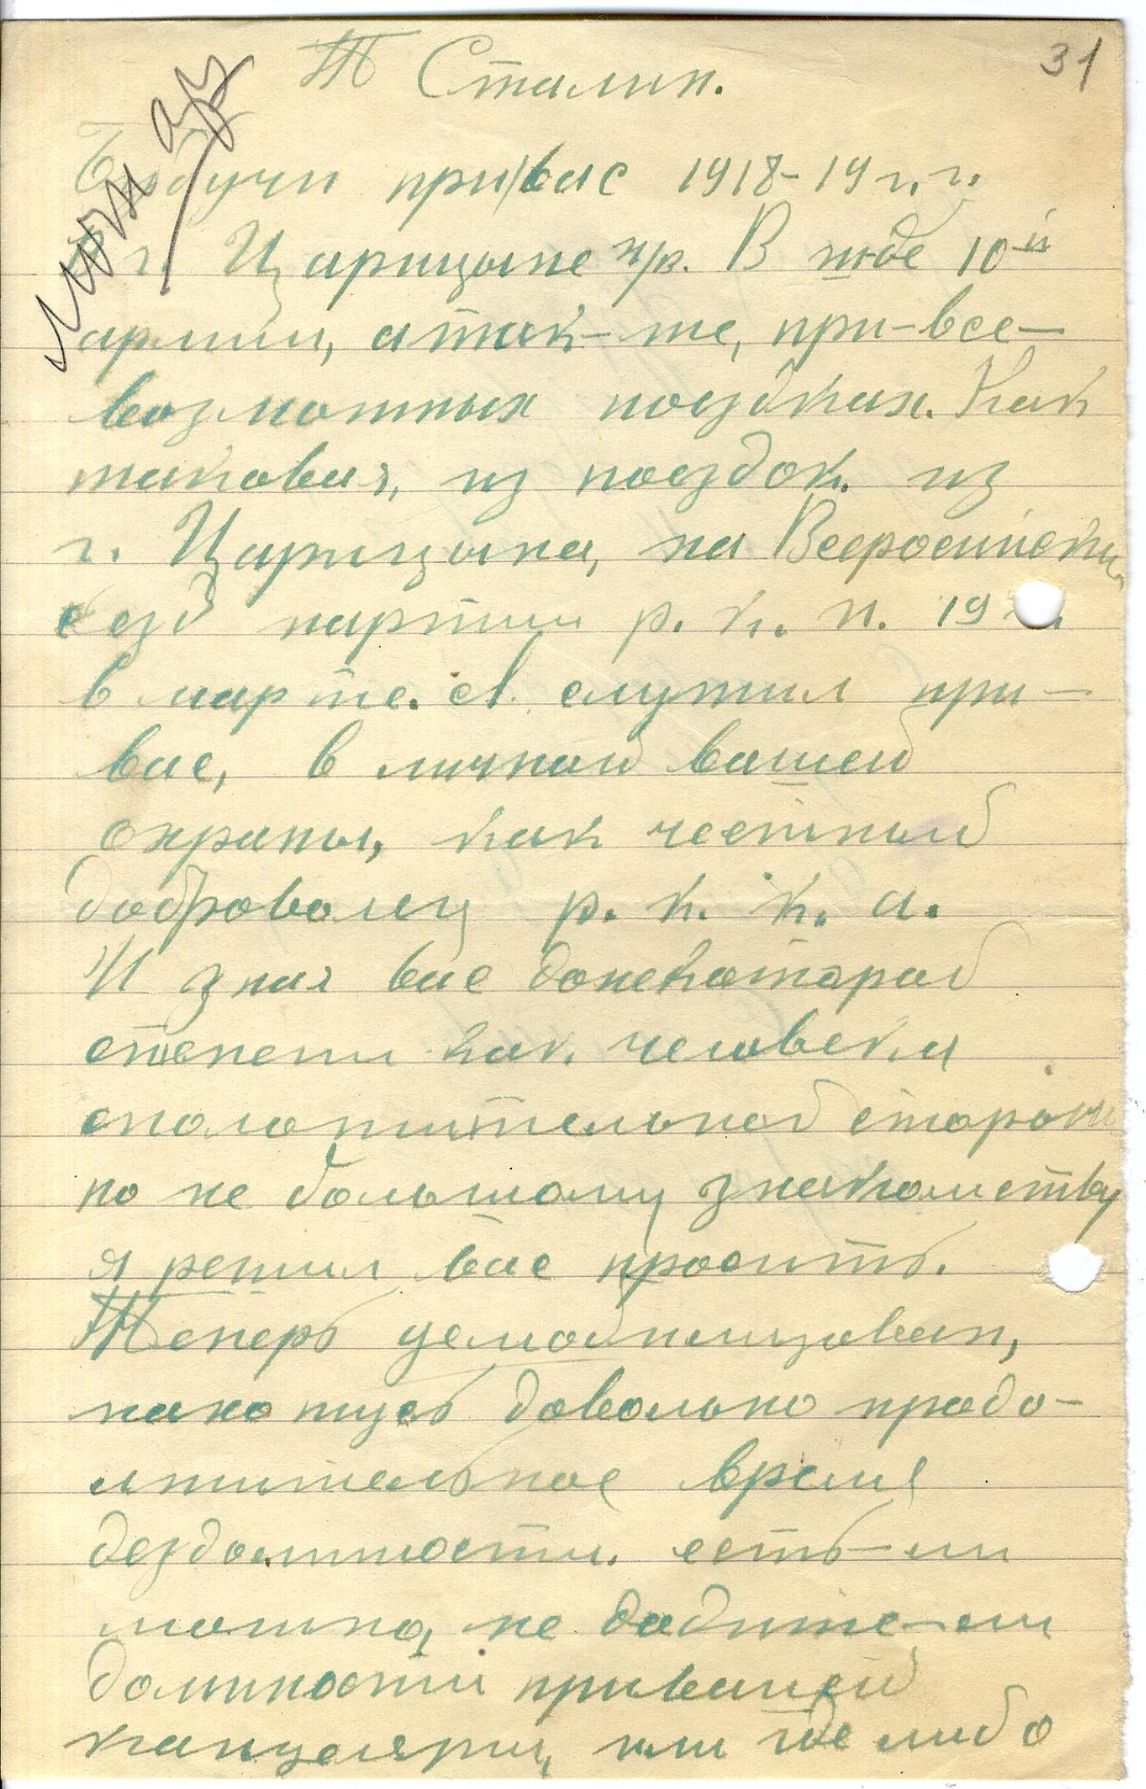 31
Т Сталин.
Будучи при вас 1918-19 г.г.
г. Царицыне н/р. В штбе 10-й
армии, атак-же, при-все-
возможных поездках. Как
таковая, из поездок. из
г. Царицына, на Всеросийски
сезд партии р. к. п. 19
в марте. Я. служил при-
вас, в личной вашей
охраны, как честный
доброволец р. к. к. а.
И зная вас донекоторой
степени как человека
сположительной стороны
по не большому знакомству
я решил вас просить.
Теперь демобилизован,
нахотусь довольно продо-
лжительное время
бездолжности. есть-ли
можно, не дадите-ли
должности привашей
канцелярии, или где либо